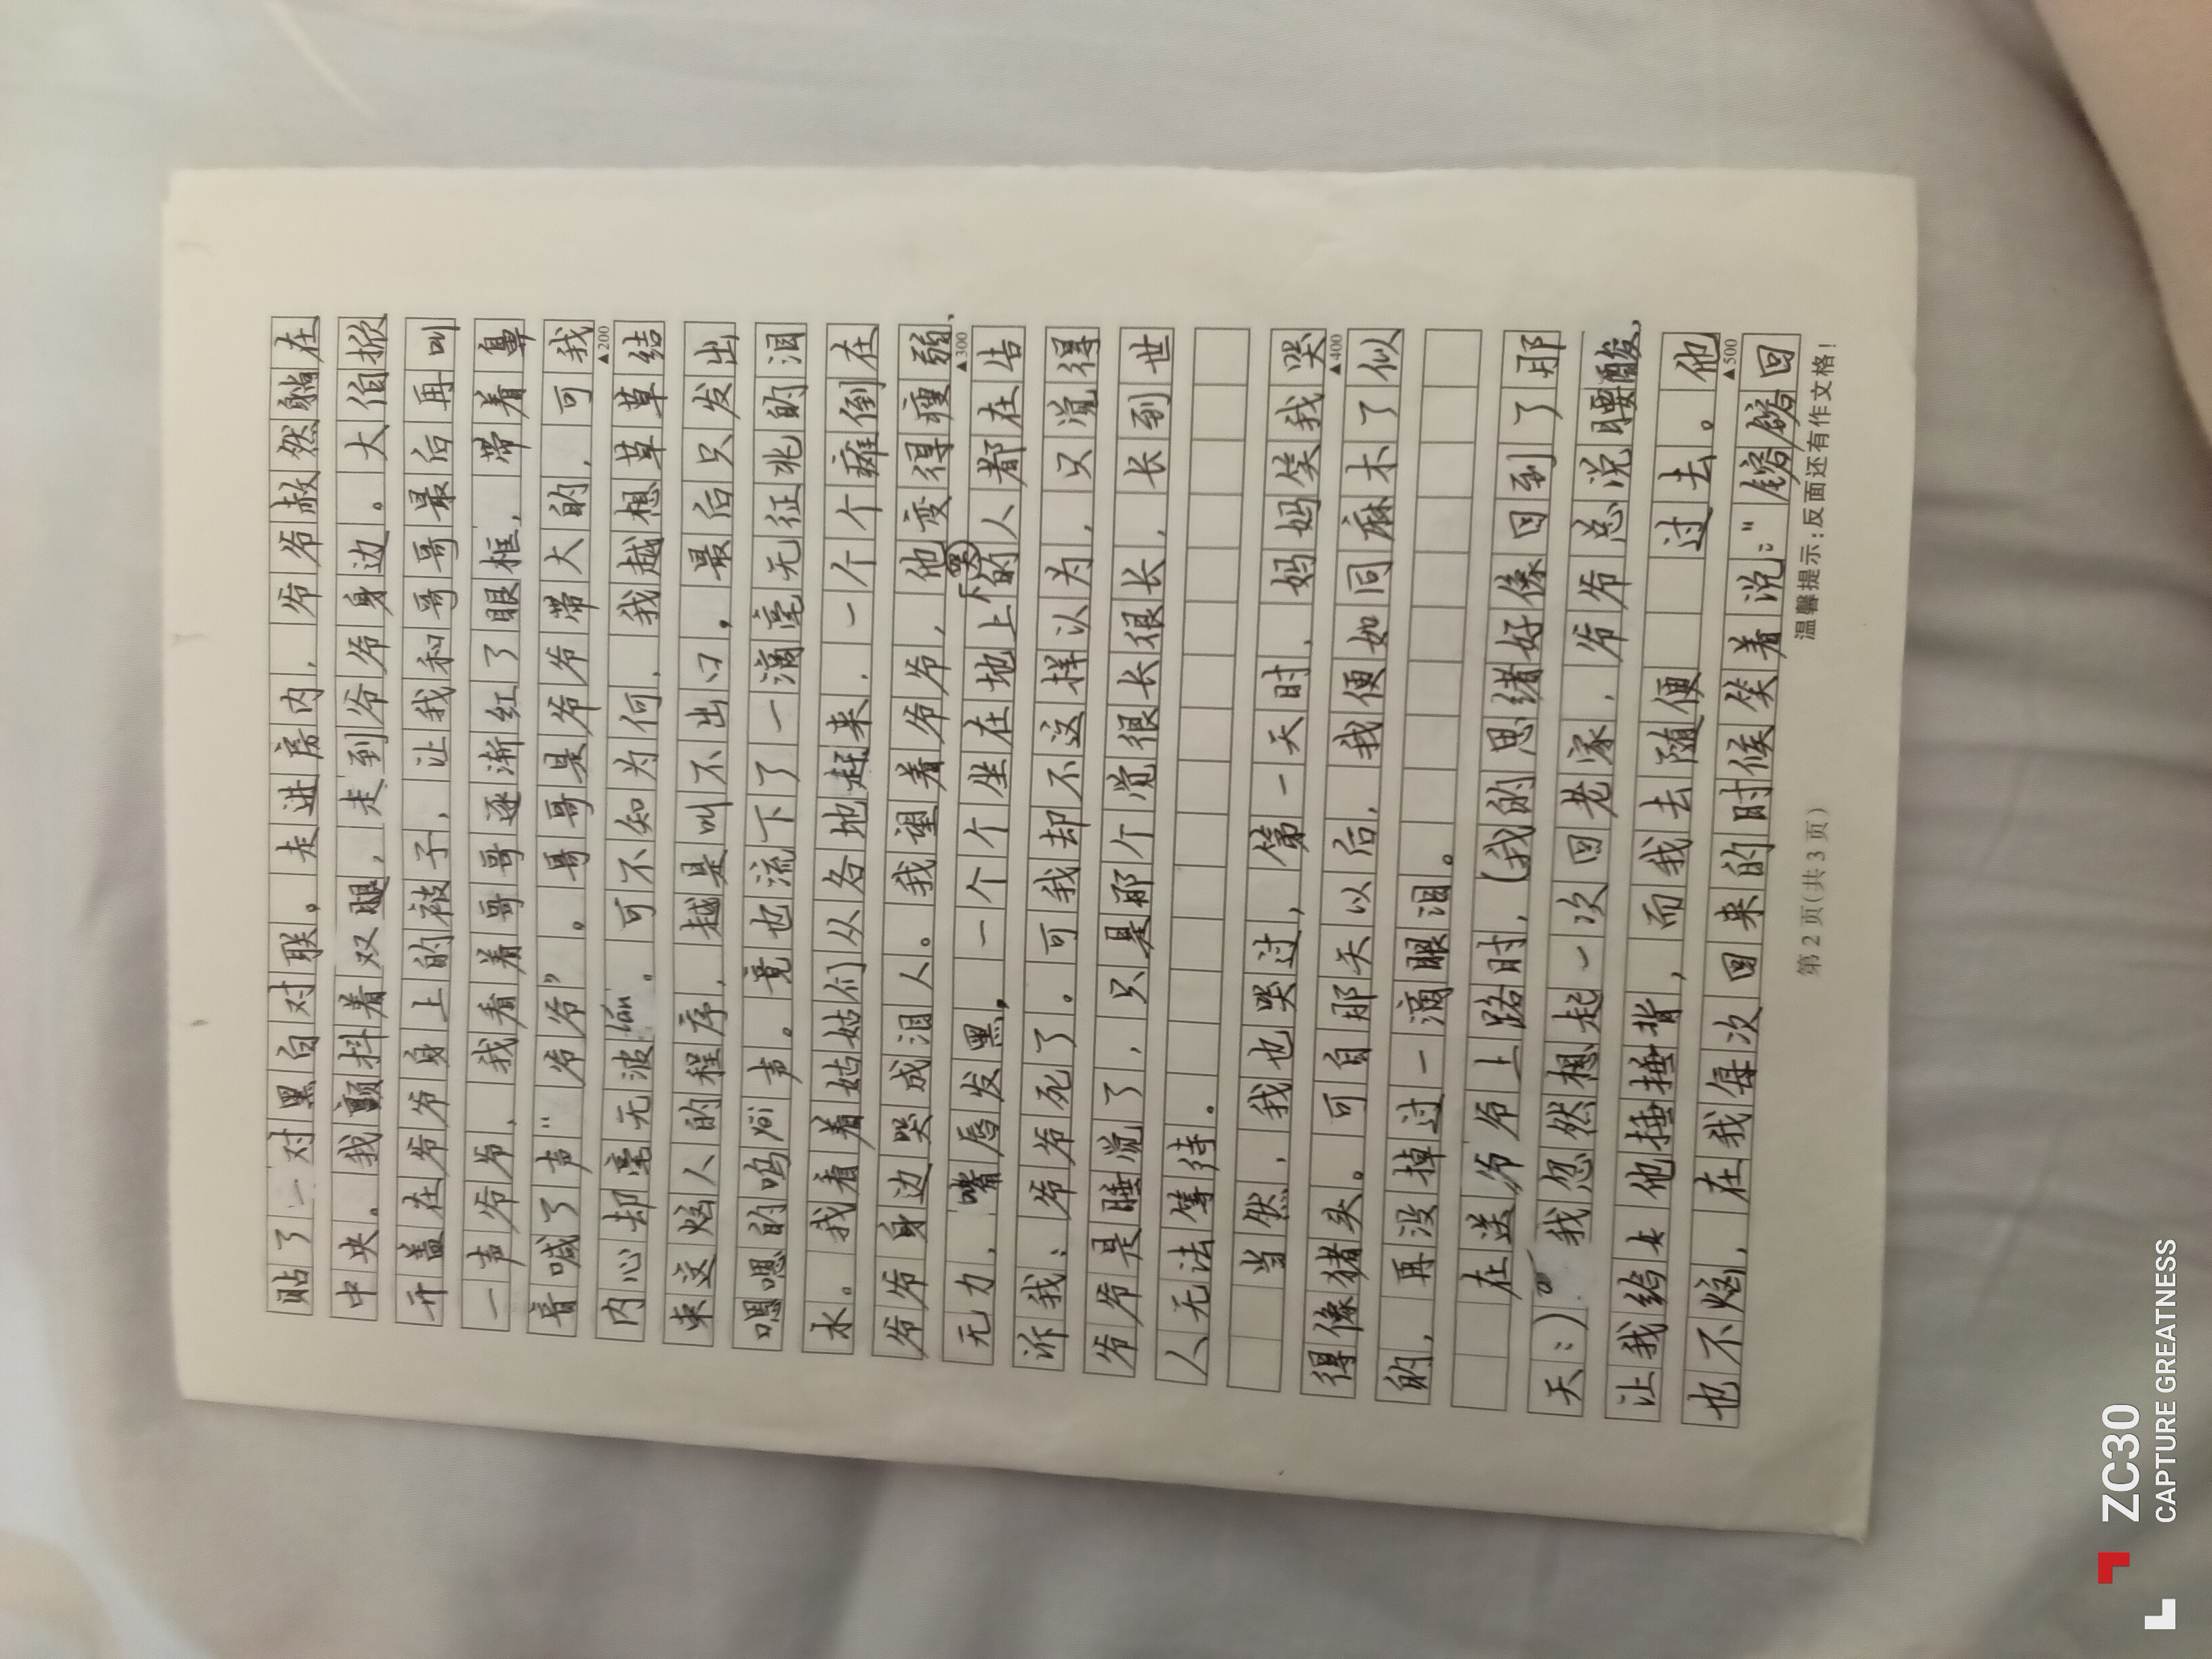 贴了一对黑白对联。走进房内，爷爷赦然躺在
中央。我颤抖着双腿，走到爷爷身边。大伯掀
开盖在爷爷身上的被子，让我和哥哥最后再叫
一声爷爷，我看着哥哥逐渐红了眼框，带着鼻
音喊了声“爷爷”。哥哥是爷爷带大的，可我
▲200
内心却毫无波。可不知为何，我越想草草结
束这烦人的程序，越是叫不出口，最后只发出
嗯嗯的呜声。竟也流下了一滴毫无征兆的泪
水。我看着姑姑们从各地赶来，一个个瘫倒在
爷爷身边哭成泪人。我望着爷爷，他变得瘦弱、
▲300
无力，嘴唇发黑，一个个坐在地上哭的人都在告
诉我：爷爷死了。可我却不这样以为，只觉得
爷爷是睡觉了，只是那个觉很长很长，长到世
人无法等待。
当然，我也哭过，第一天时，妈妈笑我哭
▲400
得像猪头。可自那天以后，我便如同麻木了似
的，再没掉过一滴眼泪。
在送爷爷上路时，(我的思绪好像回到了那
天：)我忽然想起一次回老家，爷爷总说腰酸，
让我给他捶捶背，而我去随便过去。他
▲500
也不恼，在我每次回来的时候笑着说：“锵锵回
第2页(共3页) 温馨提示：反面还有作文格！
ZC30
CAPTURE GREATNESS